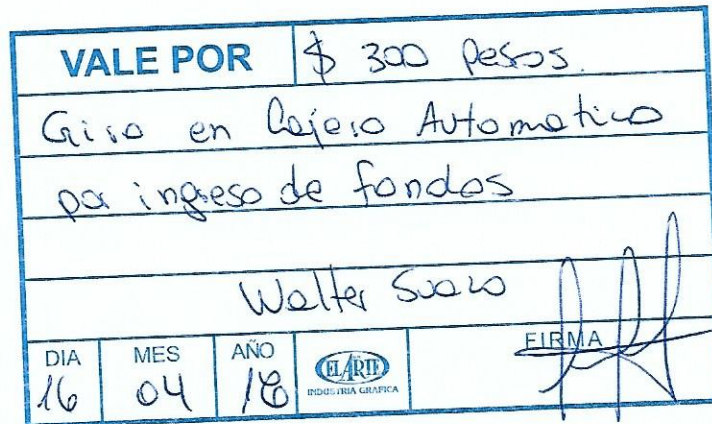 VALE POR $ 300 pesos.
Giro en Cajero Automatico
por ingreso de fondos
Walter Suazo
DIA MES AÑO FIRMA
16 04 16
EL ARTE
INDUSTRIA GRAFICA